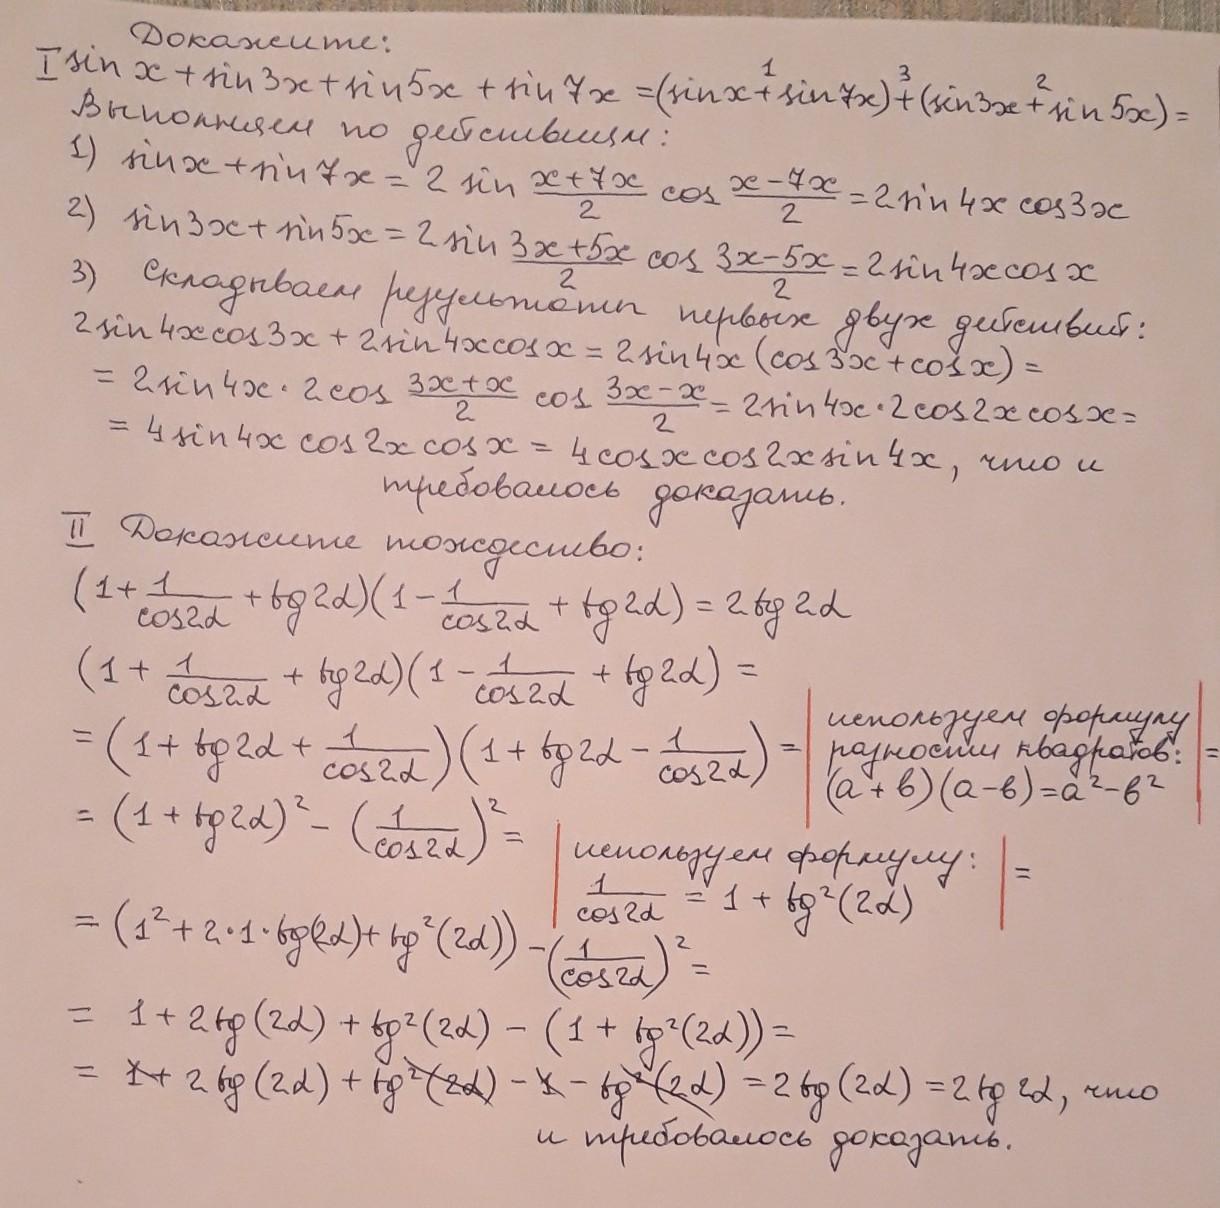 Докажите:
I sin x + sin 3x + sin 5x + sin 7x = (sin x + sin 7x) + (sin 3x + sin 5x) =
1 3 2
Выполняем по действиям:
1) sin x + sin 7x = 2 sin (x+7x)/2 cos (x-7x)/2 = 2 sin 4x cos 3x
2) sin 3x + sin 5x = 2 sin (3x+5x)/2 cos (3x-5x)/2 = 2 sin 4x cos x
3) Складываем результаты первых двух действий:
2 sin 4x cos 3x + 2 sin 4x cos x = 2 sin 4x (cos 3x + cos x) =
= 2 sin 4x · 2 cos (3x+x)/2 cos (3x-x)/2 = 2 sin 4x · 2 cos 2x cos x =
= 4 sin 4x cos 2x cos x = 4 cos x cos 2x sin 4x, что и
требовалось доказать.
II Докажите тождество:
(1 + 1/cos2α + tg2α)(1 - 1/cos2α + tg2α) = 2tg2α
(1 + 1/cos2α + tg2α)(1 - 1/cos2α + tg2α) =
= (1 + tg2α + 1/cos2α)(1 + tg2α - 1/cos2α) = | используем формулу разности квадратов: (а+в)(а-в)=а²-в² | =
= (1 + tg2α)² - (1/cos2α)² = | используем формулу: 1/cos2α = 1 + tg²(2α) | =
= (1² + 2·1·tg(2α) + tg²(2α)) - (1/cos2α)² =
= 1 + 2tg(2α) + tg²(2α) - (1 + tg²(2α)) =
= 1 + 2tg(2α) + tg²(2α) - 1 - tg²(2α) = 2tg(2α) = 2tg2α, что
и требовалось доказать.